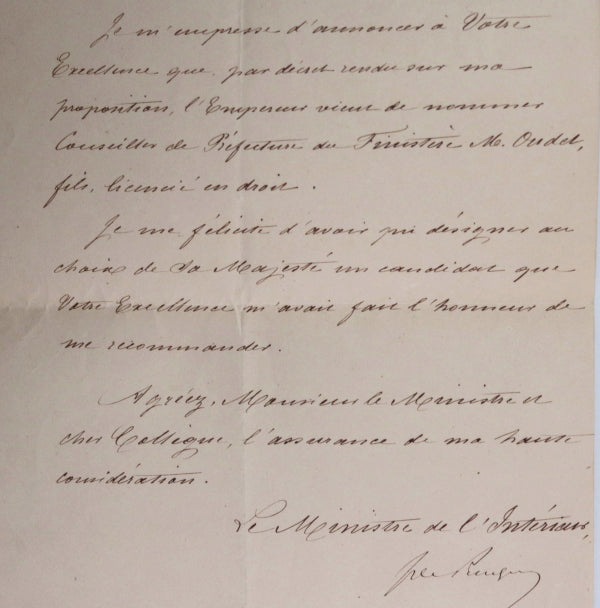 Je m'empresse d'annoncer à Votre
Excellence que, par décret rendu sur ma
proposition, l'Empereur vient de nommer
Conseiller de Préfecture du Finistère M. Oudet,
fils, licencié en droit.
Je me félicite d'avoir pu désigner au
choix de Sa Majesté un candidat que
Votre Excellence m'avait fait l'honneur de
me recommander.
Agréez, Monsieur le Ministre et
cher Collègue, l'assurance de ma haute
considération.
Le Ministre de l'Intérieur,